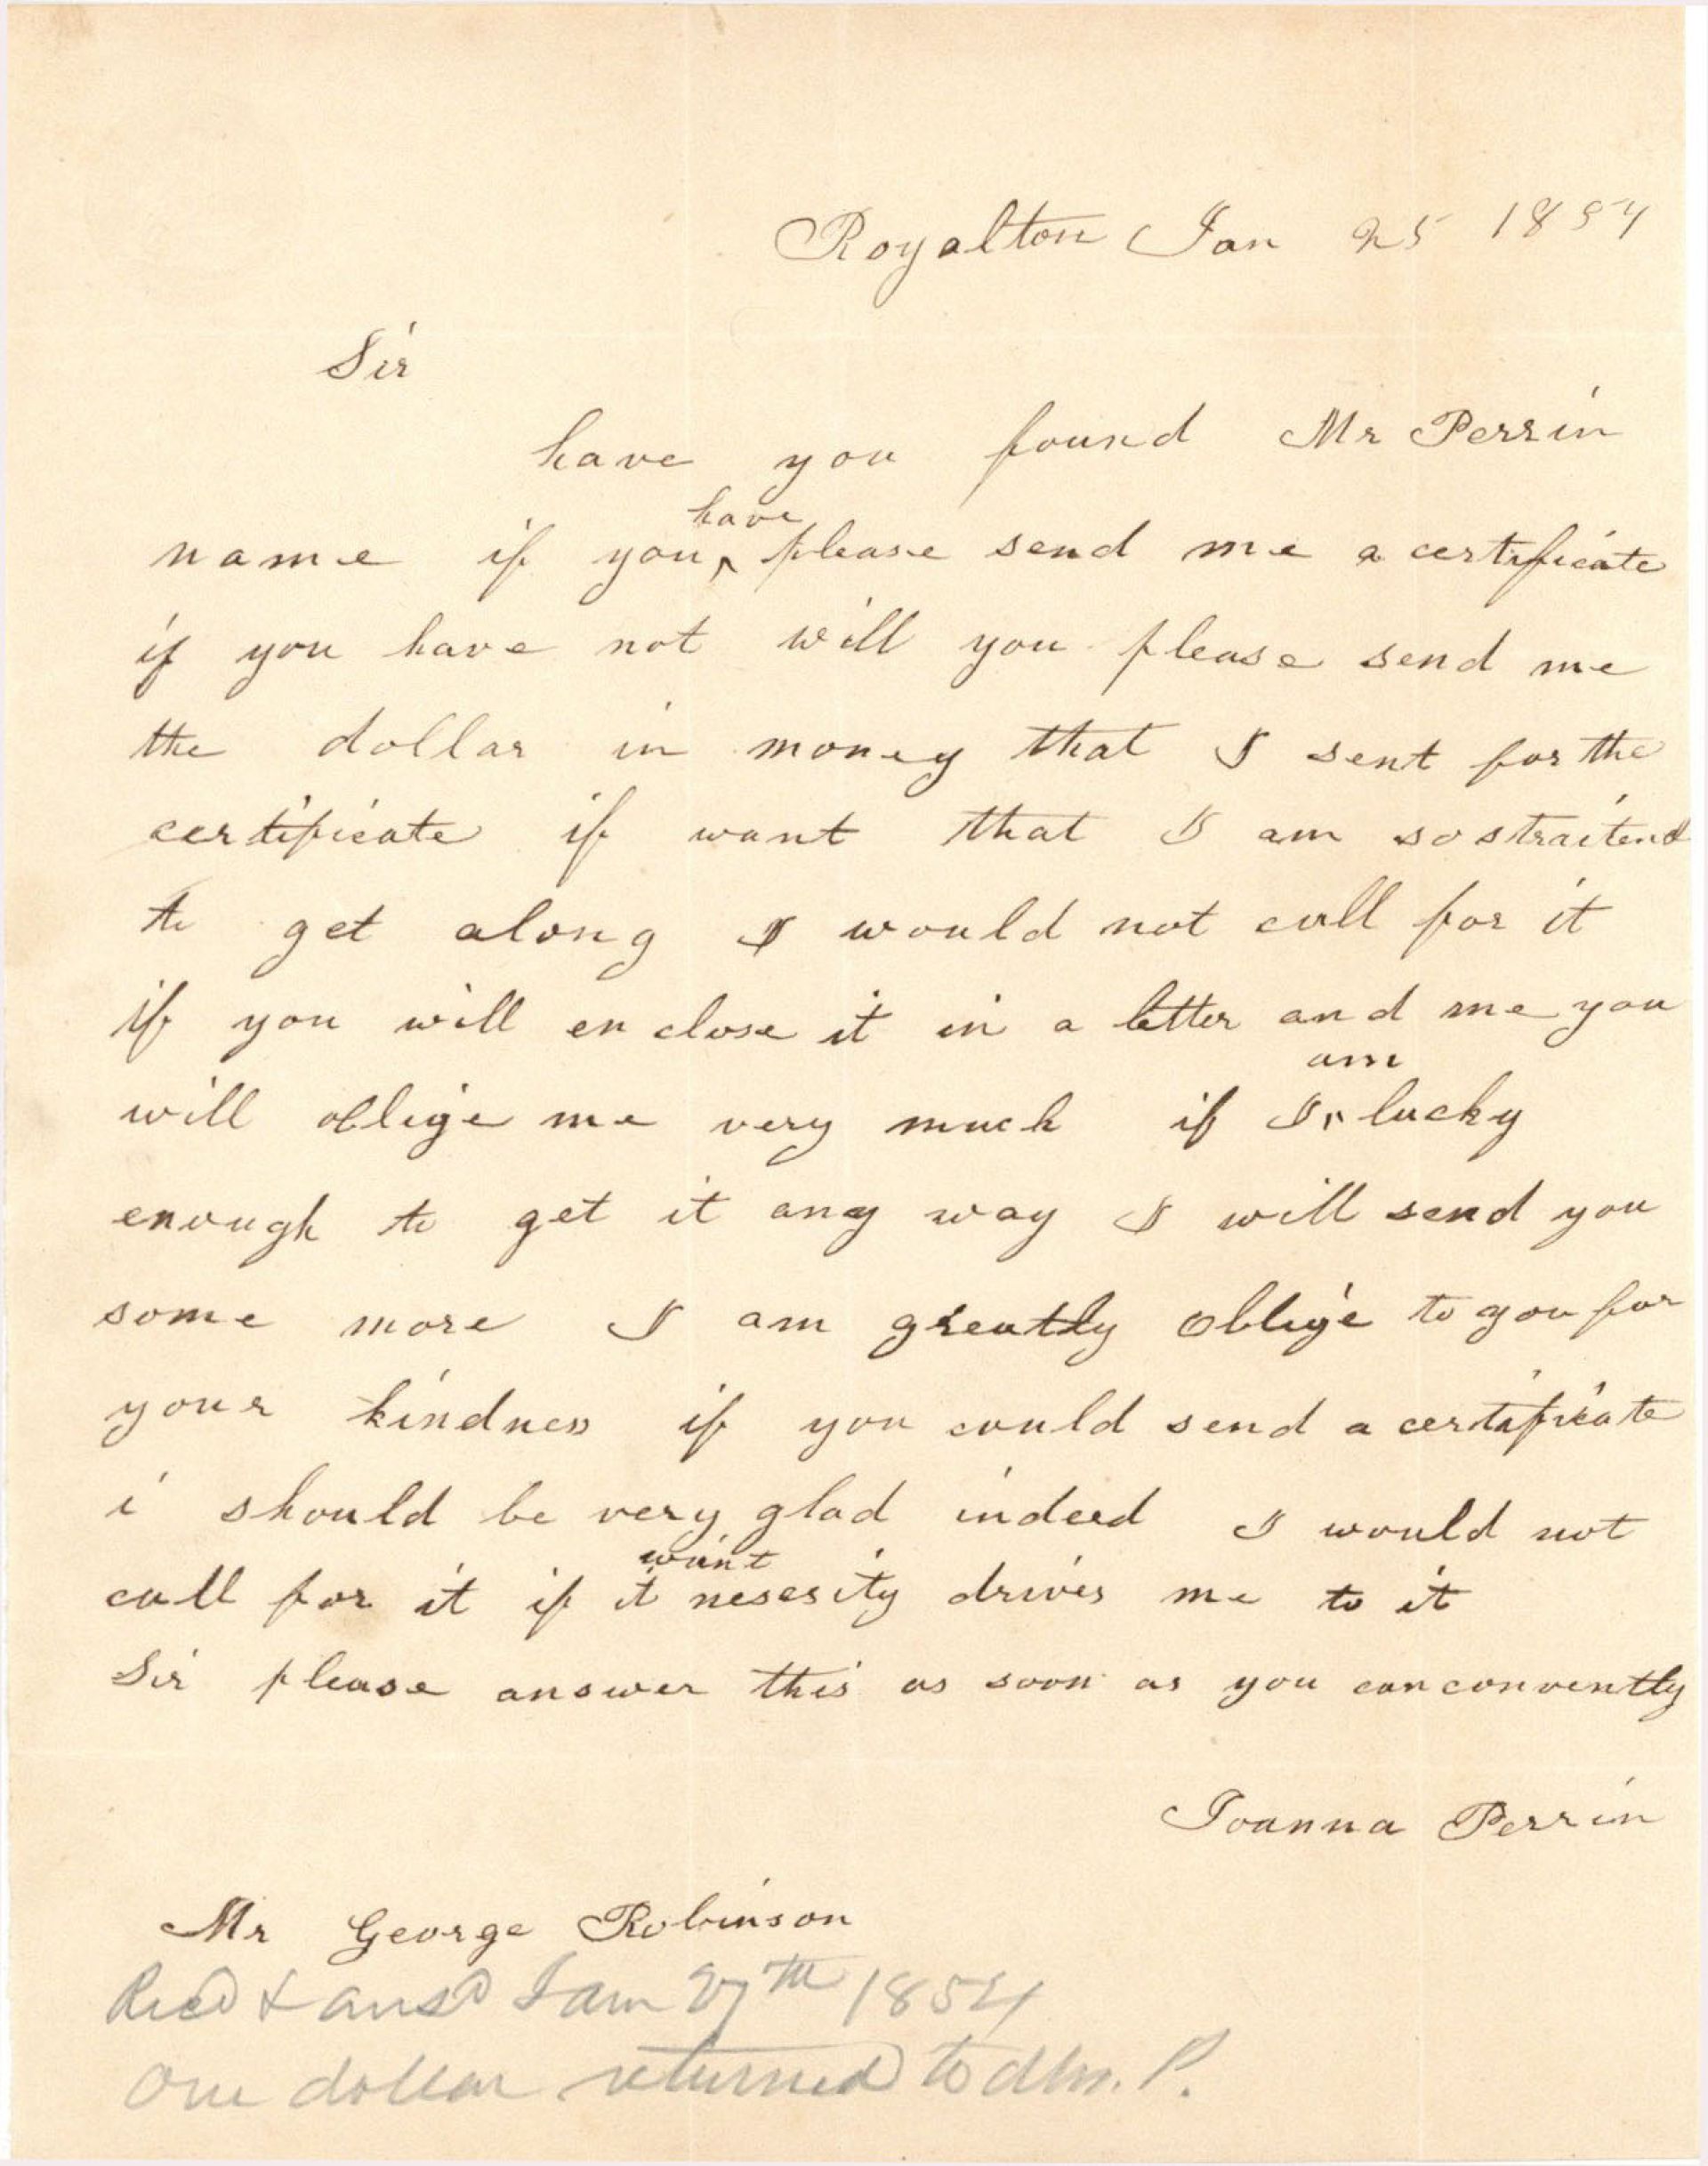 Royalton Jan 25 1854
Sir
have you found Mr Perrin
name if you have please send me a certificate
if you have not will you please send me
the dollar in money that I sent for the
certificate if want that I am so straitend
to get along I would not call for it
if you will en close it in a letter and me you
will oblige me very much if I am lucky
enough to get it any way I will send you
some more I am greatly oblige to you for
your kindness if you could send a certificate
i should be very glad indeed I would not
call for it if it want nesesity drives me to it
Sir please answer this as soon as you can convently
Joanna Perrin
Mr George Robinson
Recd & ansd Jan 27th 1854
One dollar returned to Mrs. P.